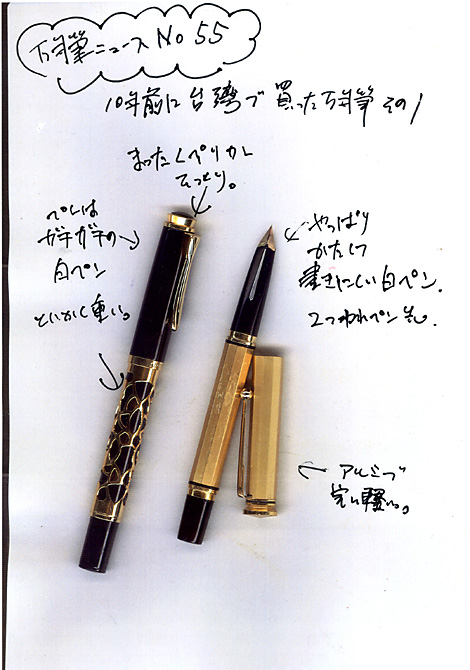 万年筆ニュース No 55
10年前に台湾で買った万年筆 その1
まったくペリカン
そっくり。
ペンは
ガチガチの
白ペン
とにかく重い。
やっぱり
かたくて
書きにくい白ペン.
2つわれペン先.
アルミで
軽い。